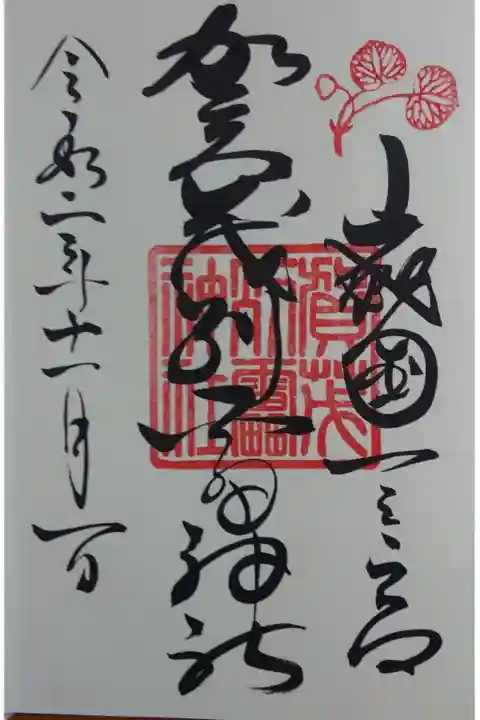 山城國一之宮
賀茂別雷神社
令和二年十一月一日
賀茂
別雷
神社